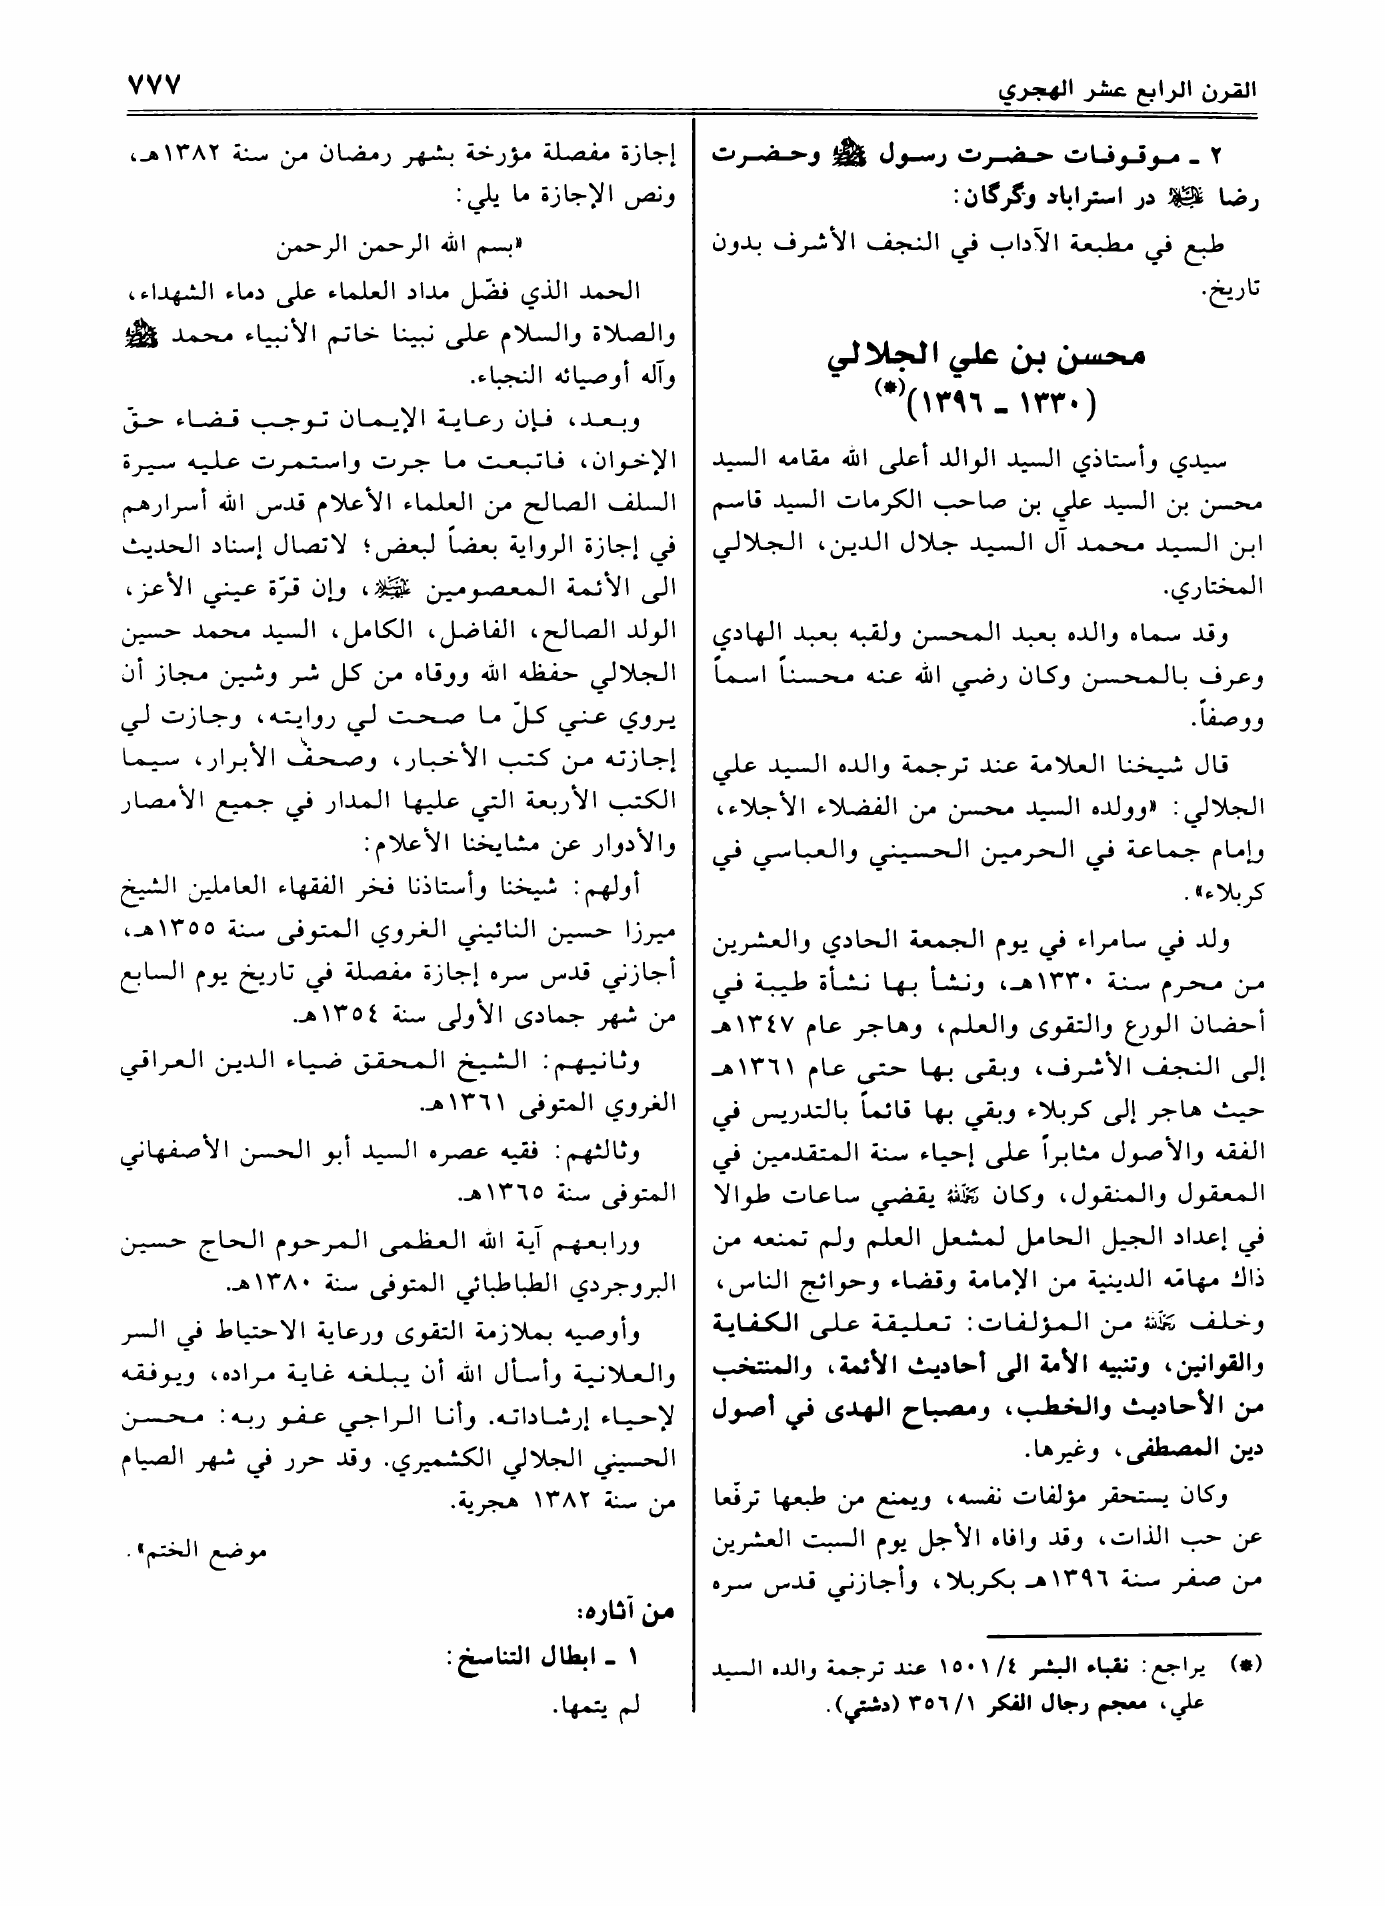 القرن الرابع عشر الهجري
٧٧٧
٢ ـ موقوفات حضرت رسول ﷺ وحضرت
رضا عليه السلام در استراباد وگرگان:
طبع في مطبعة الآداب في النجف الأشرف بدون
تاريخ.
محسن بن علي الجلالي
(١٣٣٠ ـ ١٣٩٦)(*)
سيدي وأستاذي السيد الوالد أعلى الله مقامه السيد
محسن بن السيد علي بن صاحب الكرمات السيد قاسم
ابن السيد محمد آل السيد جلال الدين، الجلالي
المختاري.
وقد سماه والده بعبد المحسن ولقبه بعبد الهادي
وعرف بالمحسن وكان رضي الله عنه محسناً اسماً
ووصفاً.
قال شيخنا العلامة عند ترجمة والده السيد علي
الجلالي: «وولده السيد محسن من الفضلاء الأجلاء،
وإمام جماعة في الحرمين الحسيني والعباسي في
كربلاء».
ولد في سامراء في يوم الجمعة الحادي والعشرين
من محرم سنة ١٣٣٠هـ، ونشأ بها نشأة طيبة في
أحضان الورع والتقوى والعلم، وهاجر عام ١٣٤٧هـ
إلى النجف الأشرف، وبقى بها حتى عام ١٣٦١هـ
حيث هاجر إلى كربلاء وبقي بها قائماً بالتدريس في
الفقه والأصول مثابراً على إحياء سنة المتقدمين في
المعقول والمنقول، وكان رحمه الله يقضي ساعات طوالا
في إعداد الجيل الحامل لمشعل العلم ولم تمنعه من
ذاك مهامّه الدينية من الإمامة وقضاء وحوائج الناس،
وخلف رحمه الله من المؤلفات: تعليقة على الكفاية
والقوانين، وتنبيه الأمة الى أحاديث الأئمة، والمنتخب
من الأحاديث والخطب، ومصباح الهدى في أصول
دين المصطفى، وغيرها.
وكان يستحقر مؤلفات نفسه، ويمنع من طبعها ترفّعا
عن حب الذات، وقد وافاه الأجل يوم السبت العشرين
من صفر سنة ١٣٩٦هـ بكربلا، وأجازني قدس سره
(*) يراجع: نقباء البشر ٤/١٥٠١ عند ترجمة والده السيد
علي، معجم رجال الفكر ١/٣٥٦ (دشتي).
إجازة مفصلة مؤرخة بشهر رمضان من سنة ١٣٨٢هـ،
ونص الإجازة ما يلي:
«بسم الله الرحمن الرحمن
الحمد الذي فضّل مداد العلماء على دماء الشهداء،
والصلاة والسلام على نبينا خاتم الأنبياء محمد ﷺ
وآله أوصيائه النجباء.
وبعد، فإن رعاية الإيمان توجب قضاء حقّ
الإخوان، فاتبعت ما جرت واستمرت عليه سيرة
السلف الصالح من العلماء الأعلام قدس الله أسرارهم
في إجازة الرواية بعضاً لبعض؛ لاتصال إسناد الحديث
الى الأئمة المعصومين عليهم السلام، وإن قرّة عيني الأعز،
الولد الصالح، الفاضل، الكامل، السيد محمد حسين
الجلالي حفظه الله ووقاه من كل شر وشين مجاز أن
يروي عني كلّ ما صحت لي روايته، وجازت لي
إجازته من كتب الأخبار، وصحف الأبرار، سيما
الكتب الأربعة التي عليها المدار في جميع الأمصار
والأدوار عن مشايخنا الأعلام:
أولهم: شيخنا وأستاذنا فخر الفقهاء العاملين الشيخ
ميرزا حسين النائيني الغروي المتوفى سنة ١٣٥٥هـ،
أجازني قدس سره إجازة مفصلة في تاريخ يوم السابع
من شهر جمادى الأولى سنة ١٣٥٤هـ.
وثانيهم: الشيخ المحقق ضياء الدين العراقي
الغروي المتوفى ١٣٦١هـ.
وثالثهم: فقيه عصره السيد أبو الحسن الأصفهاني
المتوفى سنة ١٣٦٥هـ.
ورابعهم آية الله العظمى المرحوم الحاج حسين
البروجردي الطباطبائي المتوفى سنة ١٣٨٠هـ.
وأوصيه بملازمة التقوى ورعاية الاحتياط في السر
والعلانية وأسأل الله أن يبلغه غاية مراده، ويوفقه
لإحياء إرشاداته. وأنا الراجي عفو ربه: محسن
الحسيني الجلالي الكشميري. وقد حرر في شهر الصيام
من سنة ١٣٨٢ هجرية.
موضع الختم».
من آثاره:
١ ـ ابطال التناسخ:
لم يتمها.